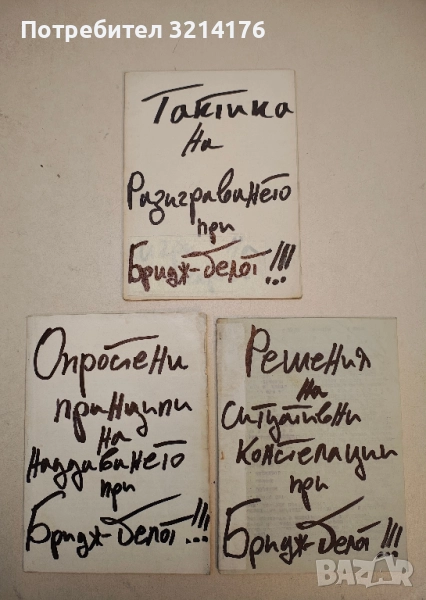 Потребител 3214176
Тактика
на
Разиграването
при
Бридж-белот!!!
Опростени
принципи
на
наддаването
при
Бридж-белот!!!
Решения
на
ситуативни
констелации
при
Бридж-белот!!!
BAZAR